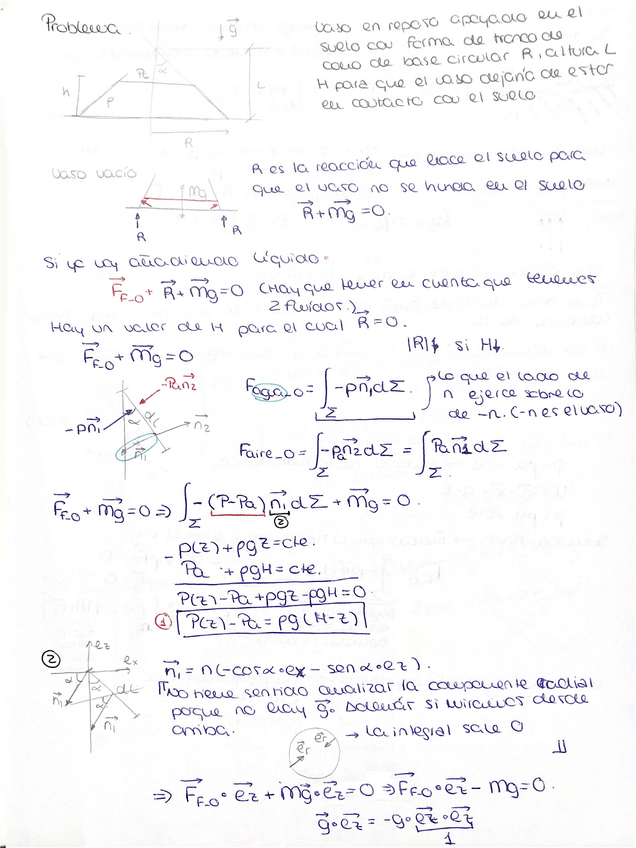 Problema.
↓g⃗
Vaso en reposo apoyado en el
suelo con forma de tronco de
cono de base circular R, altura L
H para que el vaso dejaría de estar
en contacto con el suelo
Pa
α
h
ρ
L
R
vaso vacío
mg
R
R
R es la reacción que hace el suelo para
que el vaso no se hunda en el suelo
R⃗+mg⃗=0.
Si ya voy añadiendo líquido.
F⃗F→0 + R⃗+mg⃗=0 (Hay que tener en cuenta que tenemos
2 fluidos.)
Hay un valor de H para el cual R⃗=0.
F⃗F→0+mg⃗=0
|R|↓ si H↓
-Pan⃗2
-pn⃗1
α
dL
n⃗2
n⃗1
Fagua→0 = ∫Σ -pn⃗1dΣ.
Lo que el lado de
n ejerce sobre lo
de -n. (-n es el vaso)
Faire→0 = ∫Σ -pan⃗2dΣ = ∫Σ Pan⃗1dΣ
F⃗F→0+mg⃗=0 ⇒ ∫Σ -(P-Pa) n⃗1dΣ + mg⃗=0.
②
p(z)+ρgz=cte.
- Pa + ρgH=cte.
P(z)-Pa+ρgz-ρgH=0
① P(z)-Pa=ρg(H-z)
②
ez
ex
α
dL
n⃗1
α
n⃗1
n⃗1=n(-cosα·ex - senα·ez).
No tiene sentido analizar la componente radial
porque no hay g⃗. Además si miramos desde
arriba.
e⃗r
e⃗r
→ La integral sale 0
⇒ F⃗F→0·e⃗z+mg⃗·e⃗z=0 ⇒ F⃗F→0·e⃗z-mg=0.
g⃗·e⃗z = -g·e⃗z·e⃗z
1